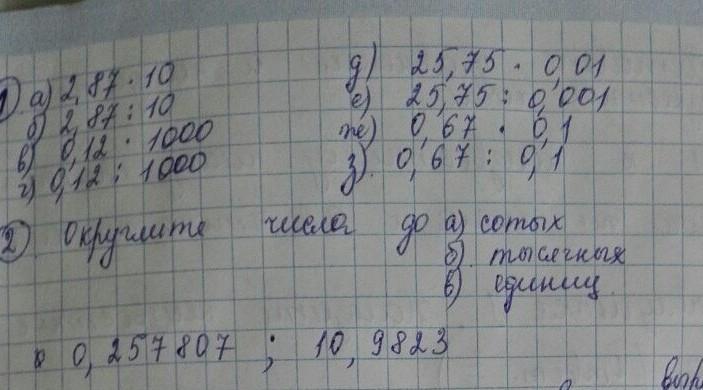 1) а) 2,87 · 10
б) 2,87 : 10
в) 0,12 · 1000
г) 0,12 : 1000
д) 25,75 · 0,01
е) 25,75 : 0,001
ж) 0,67 · 0,1
з) 0,67 : 0,1
2) Округлите числа до а) сотых
б) тысячных
в) единиц
0,257807 ; 10,9823